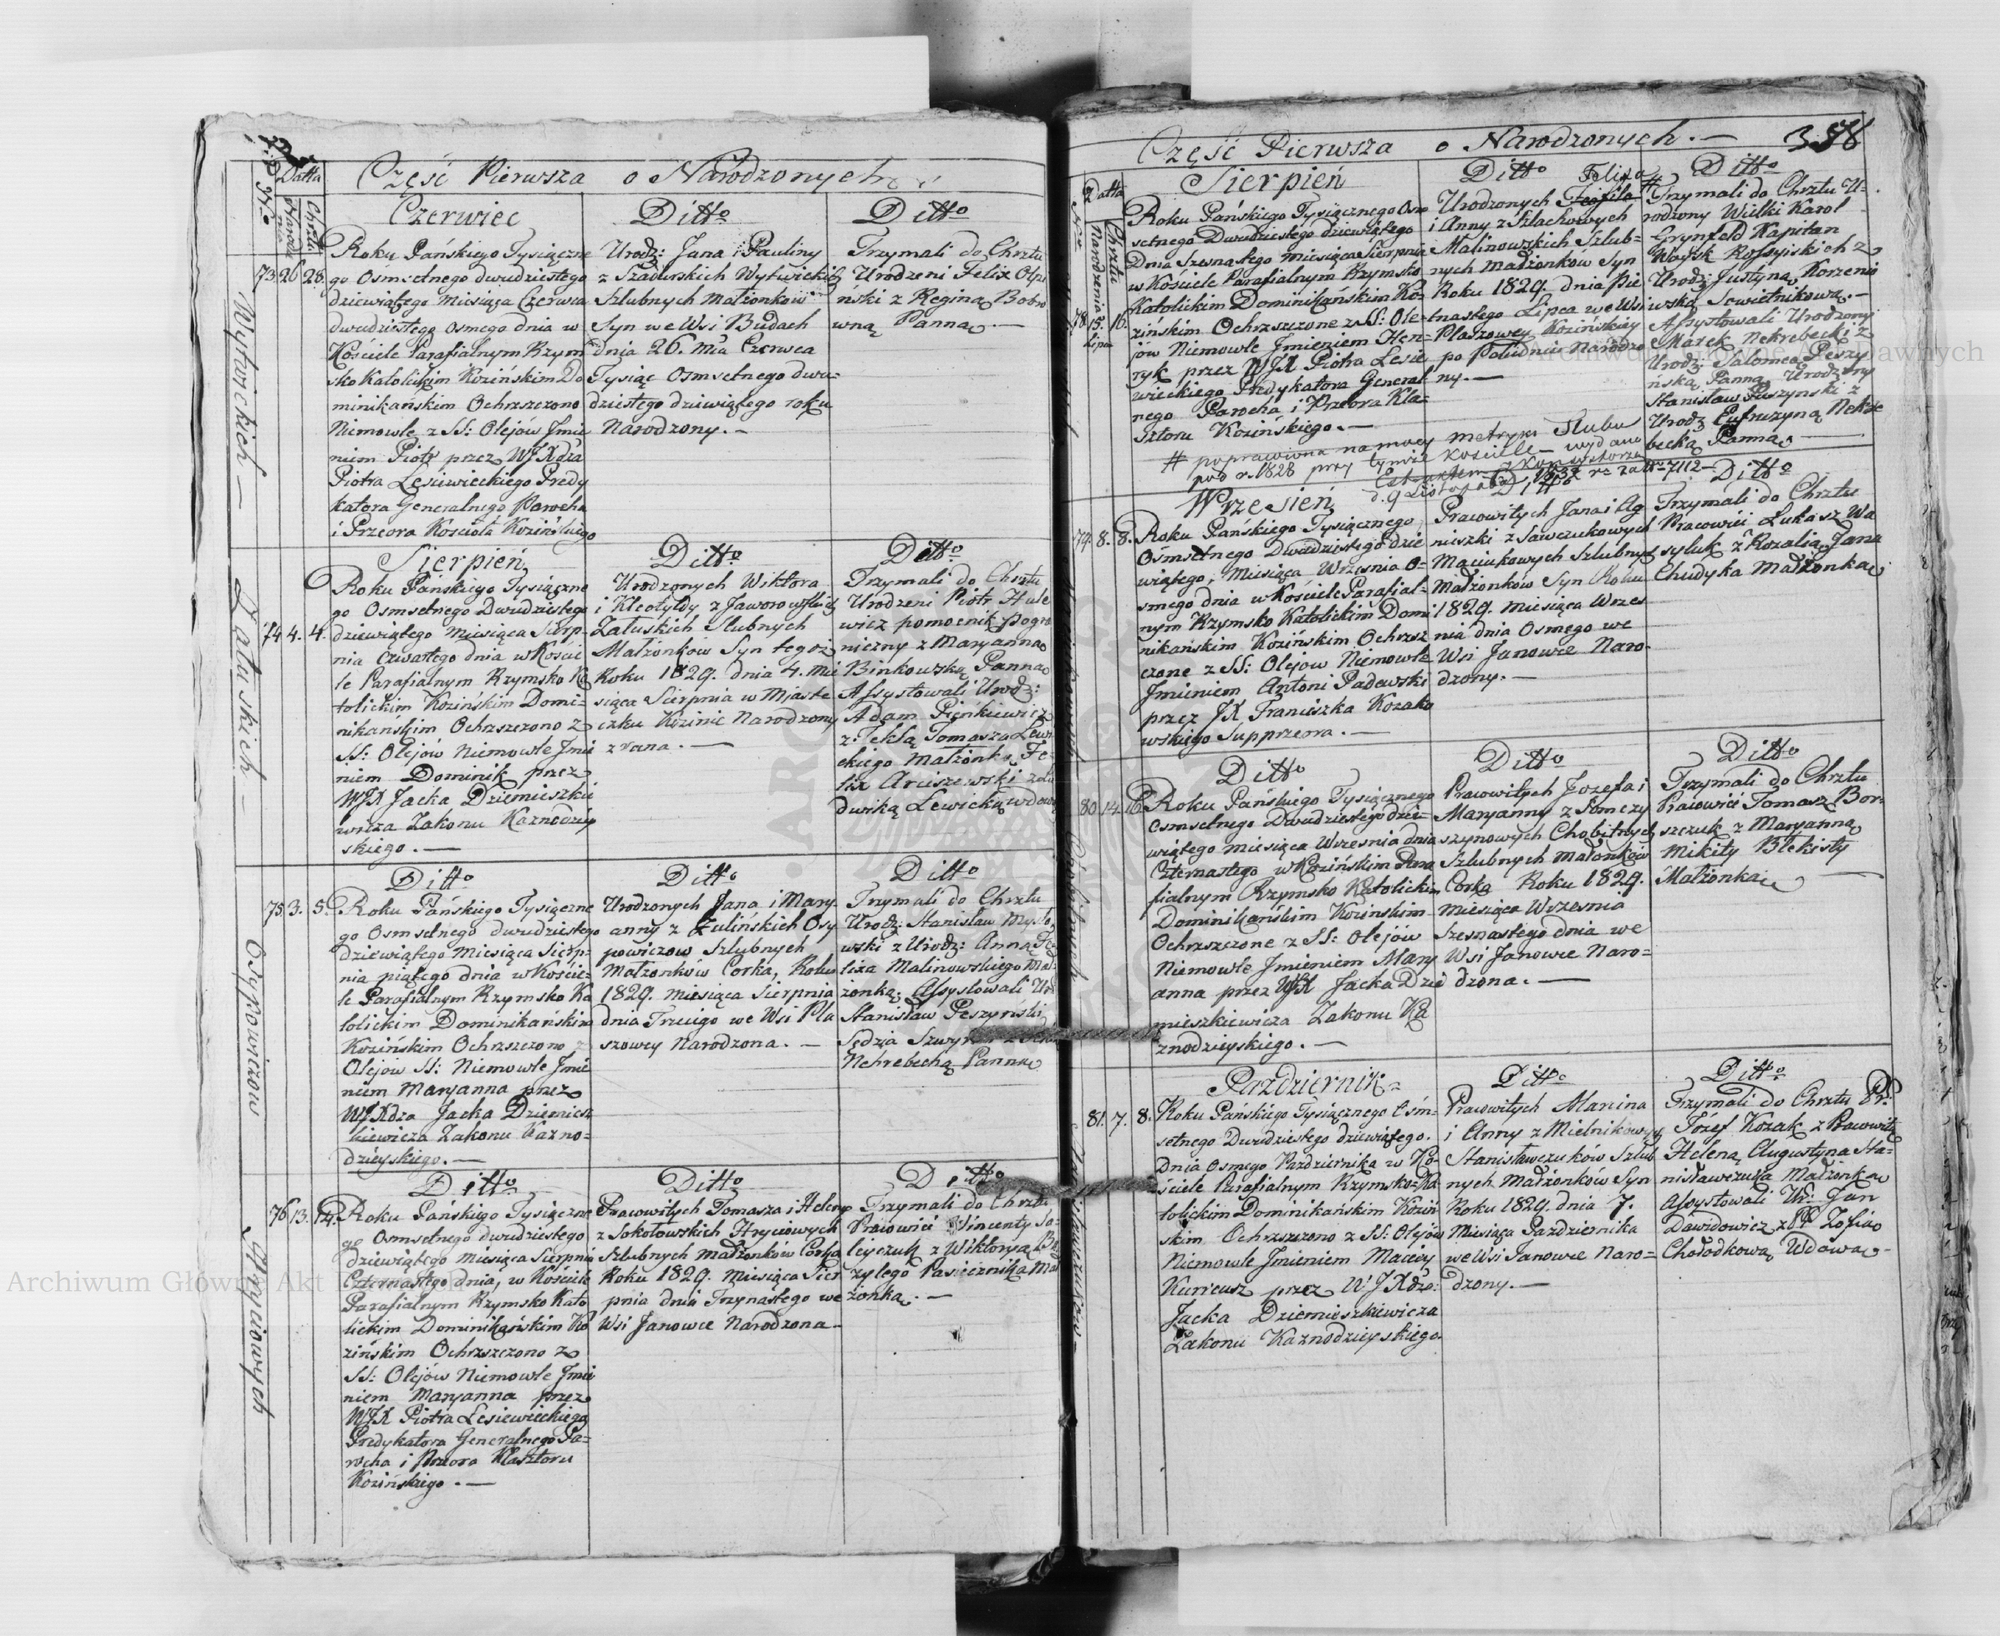 Część Pierwsza o Narodzonych
Datta
Chrztu
Czerwiec
Ditto
Ditto
73. 26. 28.
Roku Pańskiego Tysiączne
go Osmsetnego dwudziestego
dziewiątego Miesiąca Czerwca
dwudziestego osmego dnia w
Kościele Parafialnym Rzym
sko Katolickim Kozińskim Do
minikańskim Ochrzszczono
Niemowle z SS: Olejow Jmie
niem Piotr przez WJXdza
Piotra Lesiewieckiego Predy
katora Generalnego Parocha
i Przeora Kościoła Kozińskiego
Urodz: Jana i Pauliny
z Szadurskich Wytwickich
Szlubnych Małżonkow
Syn we Wsi Budach
dnia 26. Mca Czerwca
Tysiąc Osmsetnego dwu=
dziestego dziewiątego roku
Narodzony. —
Trzymali do Chrztu
Urodzeni Felix
z Reginą Bobro
wną Panną. —
Wytwickich —
Sierpień
Ditto
Ditto
74. 4. 4.
Roku Pańskiego Tysiączne
go Osmsetnego Dwudziestego
dziewiątego Miesiąca Sierp=
nia Czwartego dnia w Kościе
le Parafialnym Rzymsko Ka
tolickim Kozińskim Domi=
nikańskim Ochrzszczono z
SS: Olejów Niemowle Jmie
niem Dominik przez
WJX Jacka Dziemieszkie
wicza Zakonu Kaznodziey
skiego. —
Urodzonych Wiktora
i Kleotyldy z Jaworowskich
Załuskich Slubnych
Małżonkow Syn tegoż
Roku 1829. dnia 4. Mie
siąca Sierpnia w Miaste
czku Kozinie Narodzony
z rana. —
Trzymali do Chrztu
Urodzeni Piotr Hule
wicz pomocnik pogra
niczny z Maryanną
Binkowską Panną
Assystowali Urodz:
Adam Pieńkiewicz
z Teklą Tomasza Lewi
ckiego Małżonką, Fe
lix Arciszewski z
Lewicką wdową
Załuskich
Ditto
Ditto
Ditto
75. 3. 5.
Roku Pańskiego Tysiączne
go Osmsetnego dwudziestego
dziewiątego Miesiąca Sierp=
nia piątego dnia w Koście=
le Parafialnym Rzymsko Ka
tolickim Dominikańskim
Kozińskim Ochrzszczono z
Olejow SS: Niemowle Jmie
niem Maryanna przez
WJXdza Jacka Dziemiesz
kiewicza Zakonu Kazno=
dzieyskiego. —
Urodzonych Jana i Mary
anny z Zulińskich Osy
powiczow Szlubnych
Małżonków Corka, Roku
1829. Miesiąca Sierpnia
dnia Trzeciego we Wsi Pla
szowey Narodzona. —
Trzymali do Chrztu
Urodz: Stanisław
wski z Urodz: Anną Fe
lixa Malinowskiego Mał
żonką. Assystowali Ur:
Stanisław Peszyński
Sędzia
Nehrebecką Panną
Osypowiczow
Ditto
Ditto
Ditto
76. 13. 14.
Roku Pańskiego Tysiączne
go Osmsetnego dwudziestego
dziewiątego Miesiąca Sierpnia
Czternastego dnia, w Kościele
Parafialnym Rzymsko Kato
lickim Dominikańskim Ko
zińskim Ochrzszczono z
SS: Olejów Niemowle Jmie
niem Maryanna przez
WJX Piotra Lesiewieckiego
Predykatora Generalnego Pa=
rocha i Przeora Klasztoru
Kozińskiego. —
Pracowitych Tomasza i Heleny
z Sokołowskich Hryciowych
Szlubnych małżonków Corka
Roku 1829. Miesiąca Sier
pnia dnia Trzynastego we
Wsi Janowce Narodzona.
Trzymali do Chrztu
Pracowici Wincenty So=
z Wiktoryą
Pasiecznika Mał
żonką. —
Hryciowych
Część Pierwsza o Narodzonych. —
Datta
Narodzenia
Chrztu
Sierpień
Ditto
Ditto
78. 15. Lipca 16.
Roku Pańskiego Tysiącznego Osm
setnego Dwudziestego dziewiątego
Dnia Szesnastego Miesiąca Sierpnia
w Kościele Parafialnym Rzymsko
Katolickim Dominikańskim Ko=
zińskim Ochrzszczone z SS: Ole=
jow Niemowle Jmieniem Hen=
ryk przez WJX Piotra Lesie
wieckiego Predykatora General=
nego Parocha i Przeora Kla=
sztoru Kozińskiego. —
Felixa #
Urodzonych Teofila
i Anny z Szlachowych
Malinowskich Szlub=
nych Małżonkow Syn
Roku 1829. dnia Pię
tnastego Lipca we Wsi
Plaszowey Kozińskiey
po Południu Narodzo
ny. —
Trzymali do Chrztu U=
rodzony Wielki Karol
Grynfeld Kapitan
Woysk Rossyiskich z
Urodz: Justyną Korzenio
wską Sowietnikową. —
Assystowali Urodzony
Marek Nehrebecki z
Urodz: Salomeą Peszy
ńską Panną Urodzony
Stanisław Puszynski z
Urodz: Eufruzyną Nehre
becką Panną. —
# poprawiona na mocy metryki Slubu
pod r. 1828 przy tymże kosciele — wydana
d. 9 Listopada 1832 r. za No 7112 —
Wrzesień
Ditto
Ditto
79. 8. 8.
Roku Pańskiego Tysiącznego
Osmsetnego Dwudziestego dzie
wiątego, Miesiąca Wrzesnia O=
smego dnia w Kościele Parafial=
nym Rzymsko Katolickim Domi
nikańskim Kozińskim Ochrzsz
czone z SS: Olejow Niemowle
Jmieniem Antoni Padewski
przez JX Franciszka Kozako
wskiego Supprzeora. —
Pracowitych Jana i Ag
nieszki z Sawczukowych
Maciukowych Szlubnych
Małżonków Syn Roku
1829. Miesiąca Wrzes
nia dnia Osmego we
Wsi Janowce Naro=
dzony. —
Trzymali do Chrztu
Pracowici Łukasz Wa
syluk z Rozalią Jana
Chudyka Małżonką
Ditto
Ditto
Ditto
80. 14. 16.
Roku Pańskiego Tysiącznego
Osmsetnego Dwudziestego dzie=
wiątego Miesiąca Wrzesnia dnia
Czternastego w Kozińskim Para
fialnym Rzymsko Katolickim
Dominikańskim Kozińskim
Ochrzszczone z SS: Olejów
Niemowle Jmieniem Mary
anna przez WJX Jacka Dzie
mieszkiewicza Zakonu Ka
znodzieyskiego. —
Pracowitych Jozefa i
Maryanny z Pomczy
szynowych Chobitnych
Szlubnych małżonków
Corka Roku 1829.
Miesiąca Wrzesnia
Szesnastego dnia we
Wsi Janowce Naro=
dzona. —
Trzymali do Chrztu
Pracowici Tomasz Bor=
szczuk z Maryanną
Mikity Blekisty
Małżonką
Pazdziernik
Ditto
Ditto
81. 7. 8.
Roku Pańskiego Tysiącznego Osm=
setnego Dwudziestego dziewiątego.
Dnia Osmego Pazdziernika w Ko=
ściele Parafialnym Rzymsko Ka
tolickim Dominikańskim Koziń
skim Ochrzszczono z SS: Olejów
Niemowle Jmieniem Maciey
przez WJXdza:
Jacka Dziemieszkiewicza
Zakonu Kaznodzieyskiego
Pracowitych Marcina
i Anny z Mielnikowych
Stanisławczuków Szlub
nych Małżonków Syn
Roku 1829. dnia 7.
Miesiąca Pazdziernika
we Wsi Janowce Naro=
dzony. —
Trzymali do Chrztu Pr:
Józef Kozak z Pracowitą
Heleną Augustyna Sta=
nisławczuka Małżonką
Assystowali Ur: Jan
Dawidowicz z Zofią
Chołodkową Wdową
Archiwum Główne Akt Dawnych